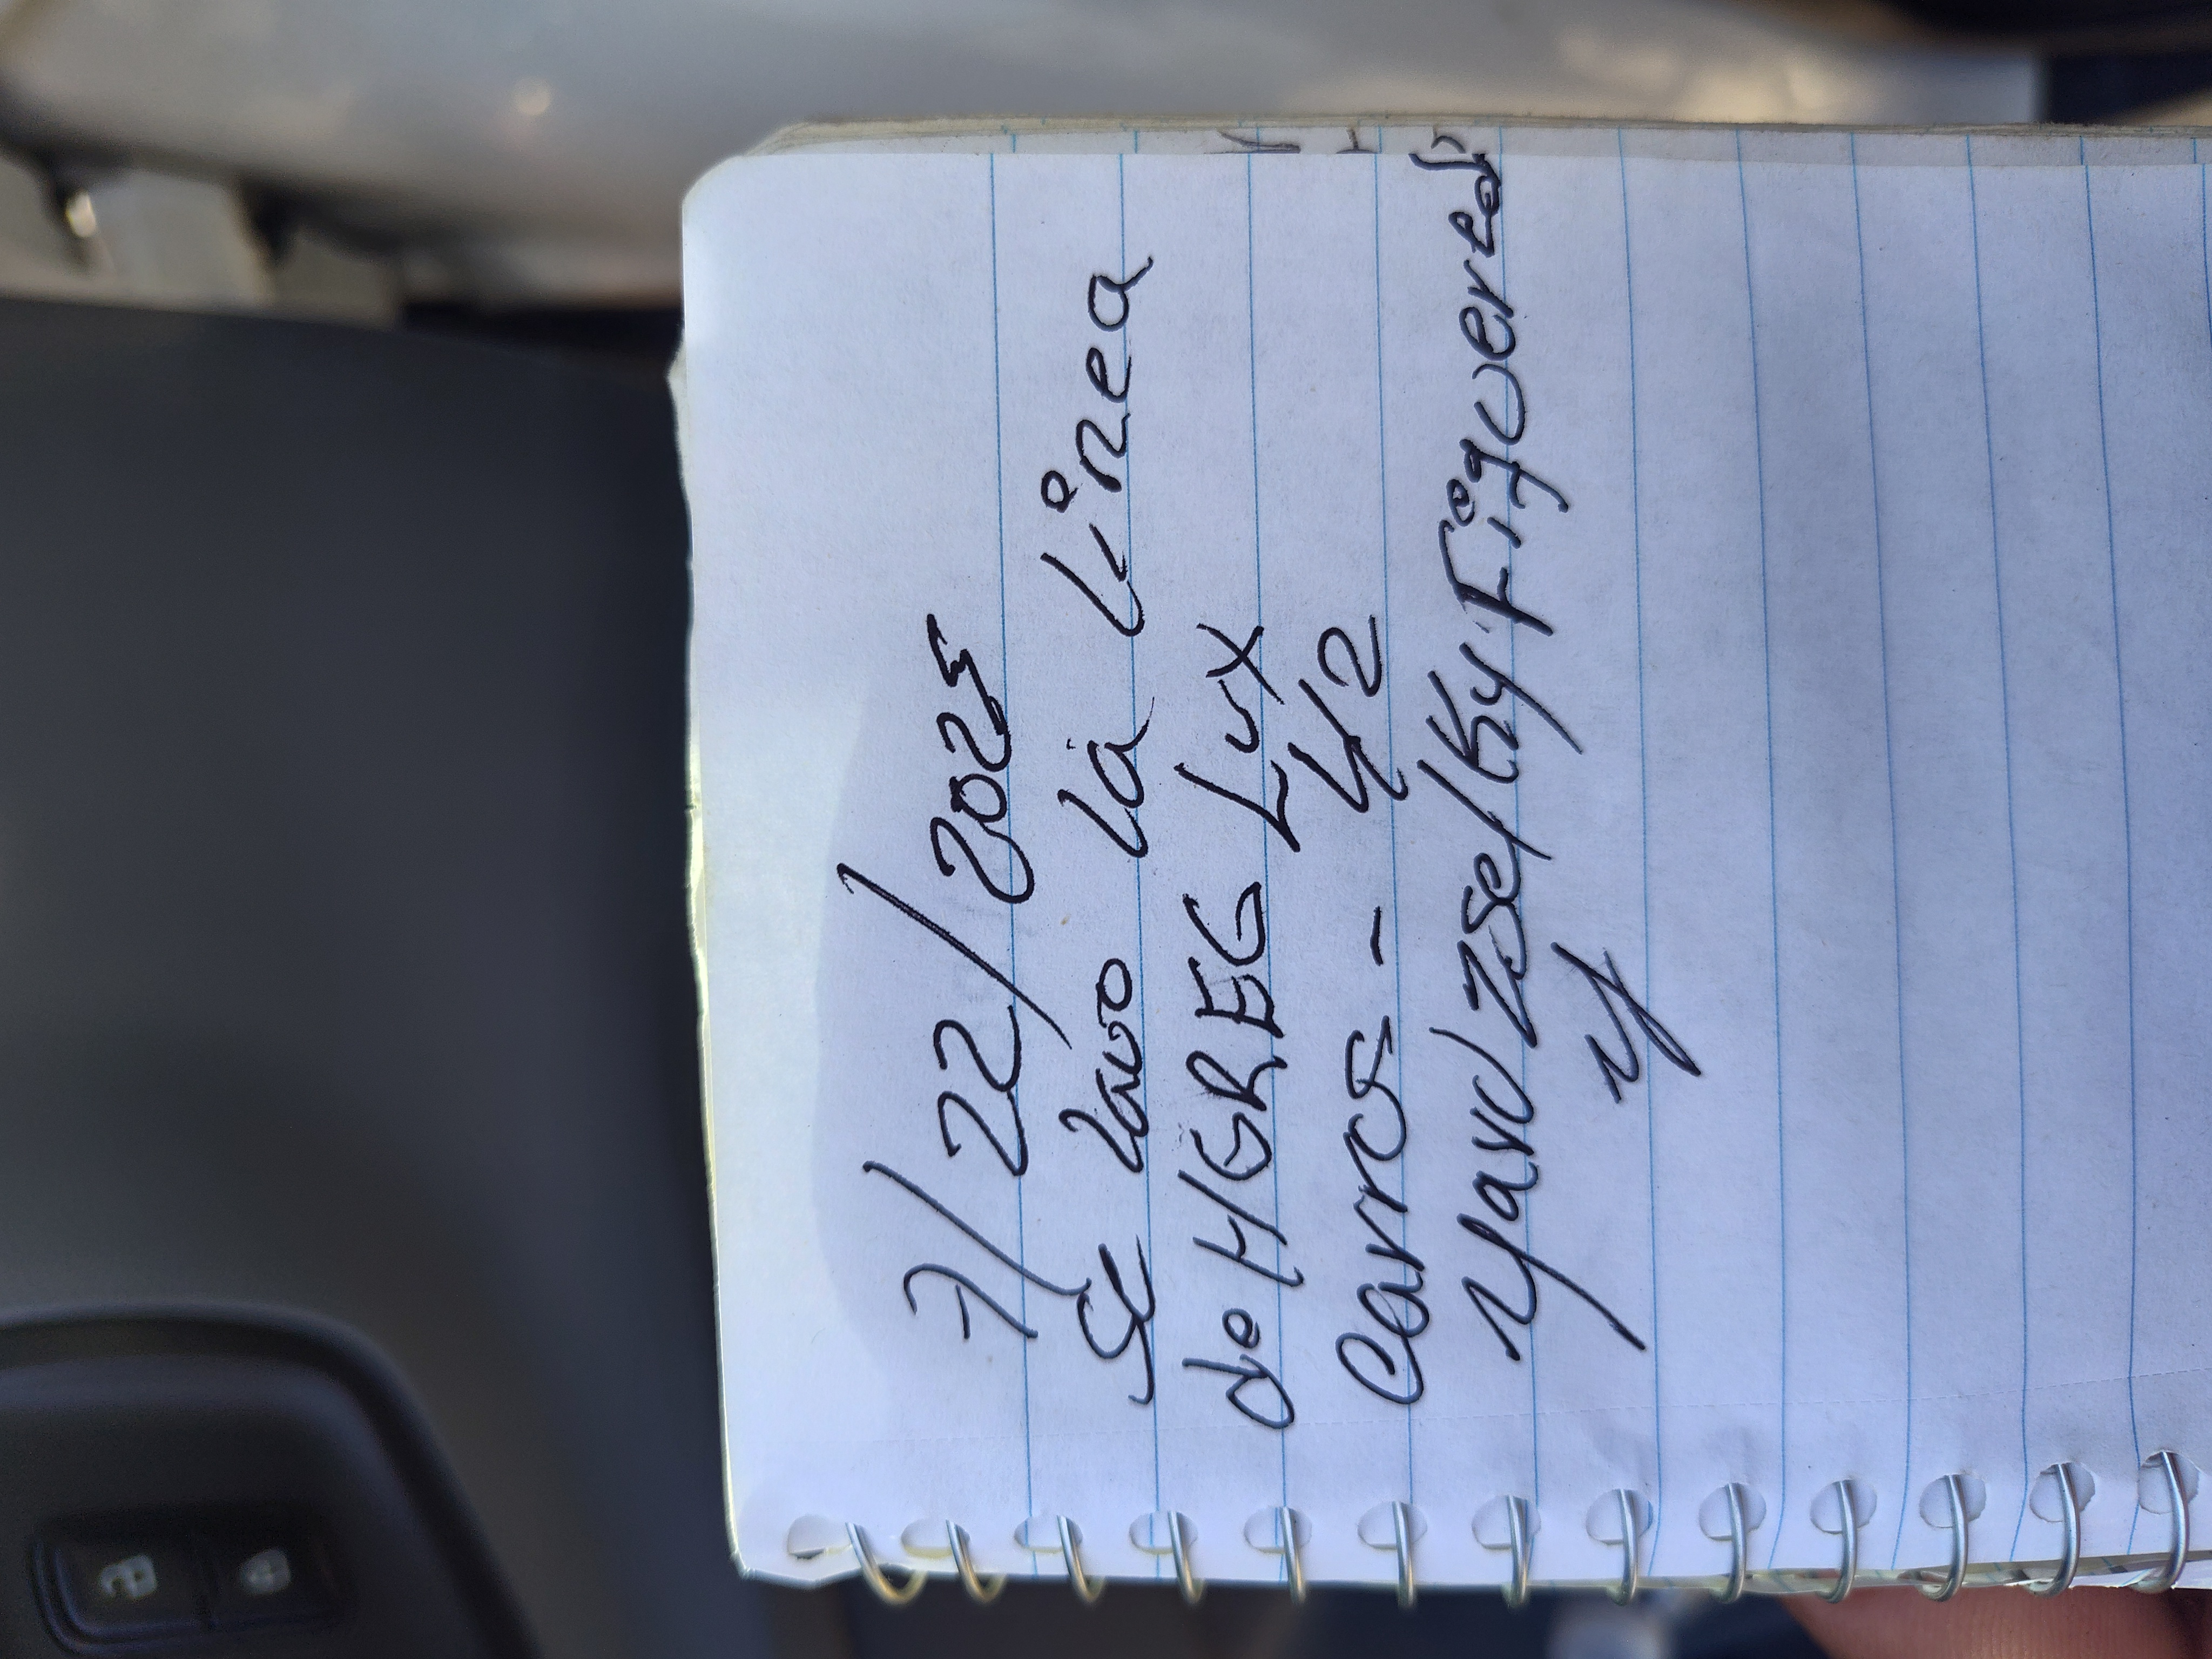 7/22/2025
Se lavo la Linea
de HGREG Lux
Carros - 42
Yard Zsel Ky Figueredo
y